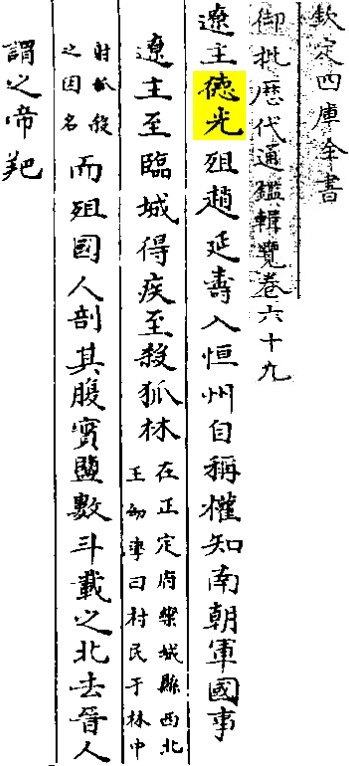 欽定四庫全書
御批歴代通鑑輯覽卷六十九
遼主德光殂趙延壽入恒州自稱權知南朝軍國事
遼主至臨城得疾至殺狐林
在正定府欒城縣西北
王幼學曰村民于林中
射狐殺
之因名
而殂國人剖其腹實鹽數斗載之北去晉人
謂之帝羓